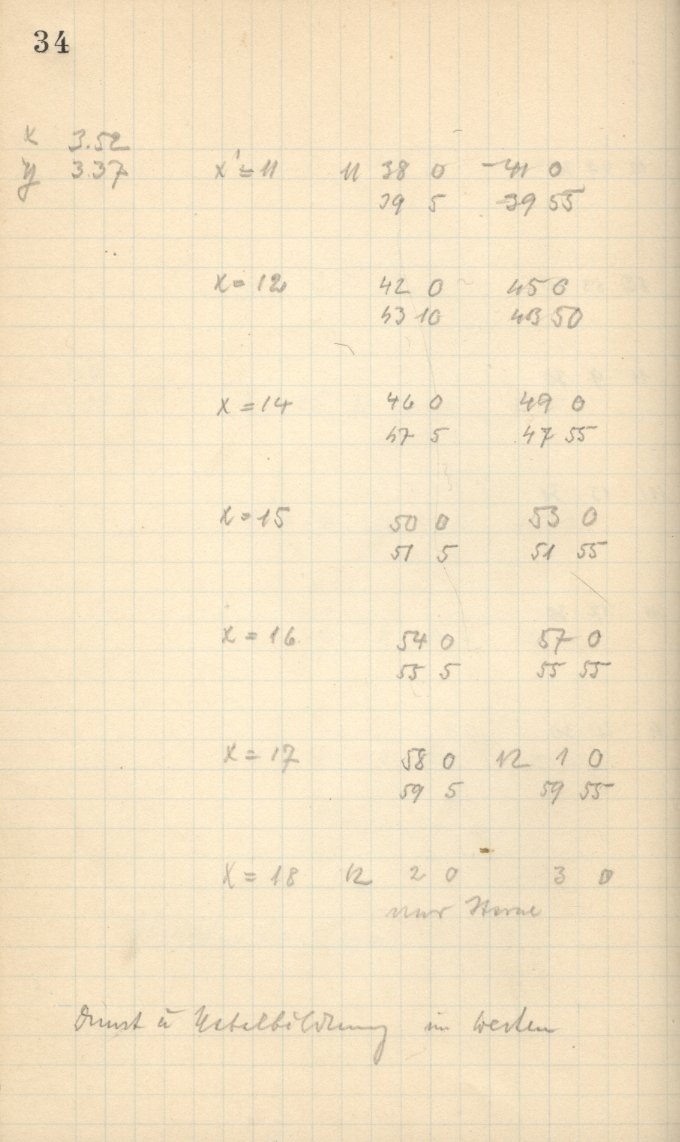 34
x 3.52
y 3.37 x'=11 11 38 0 -41 0
39 5 39 55
x=12 42 0 45 0
43 10 43 50
x=14 46 0 49 0
47 5 47 55
x=15 50 0 53 0
51 5 51 55
x=16 54 0 57 0
55 5 55 55
x=17 58 0 12 1 0
59 5 59 55
x=18 12 2 0 3 0
nur Sterne
Dunst u Nebelbildung im Westen